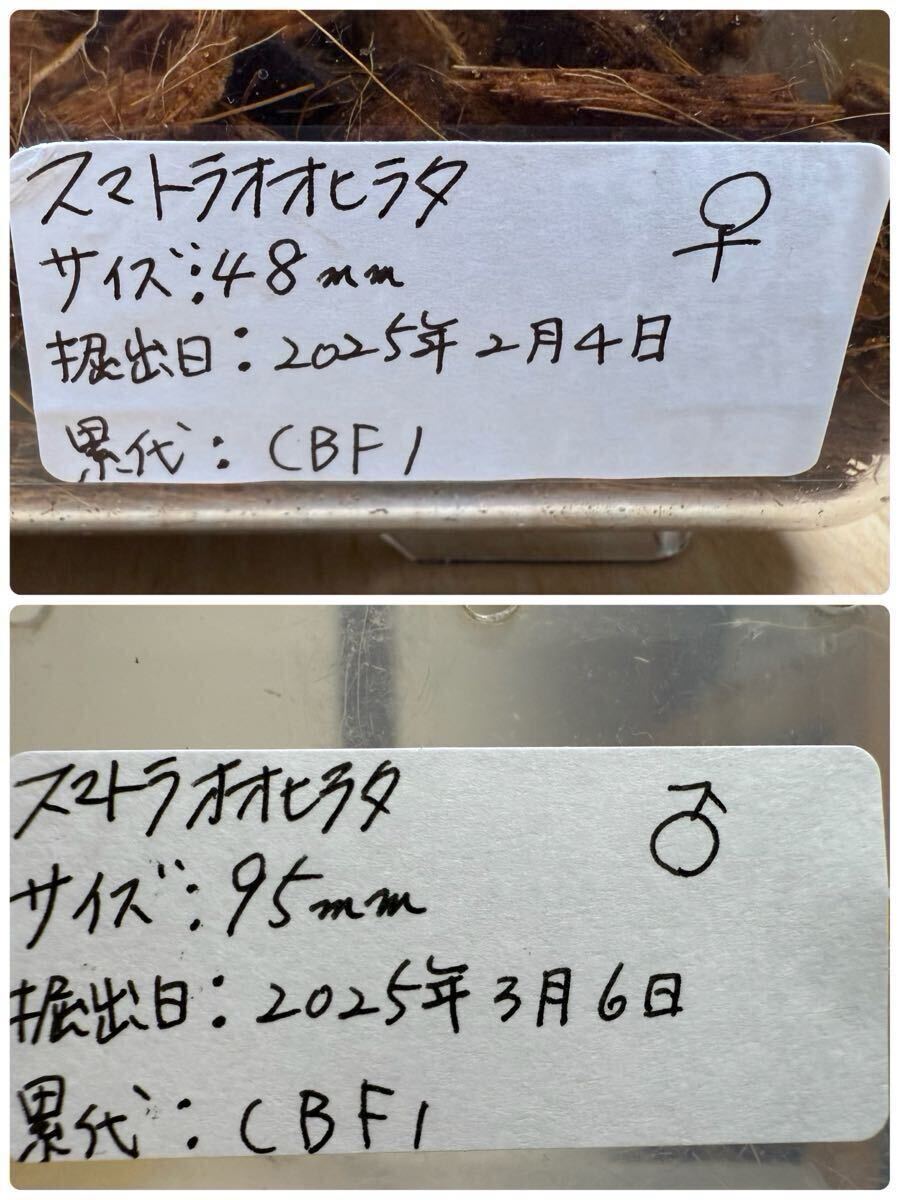 スマトラオオヒラタ ♀
サイズ:48mm
掘出日:2025年2月4日
累代:CBF1
スマトラオオヒラタ ♂
サイズ:95mm
掘出日:2025年3月6日
累代:CBF1